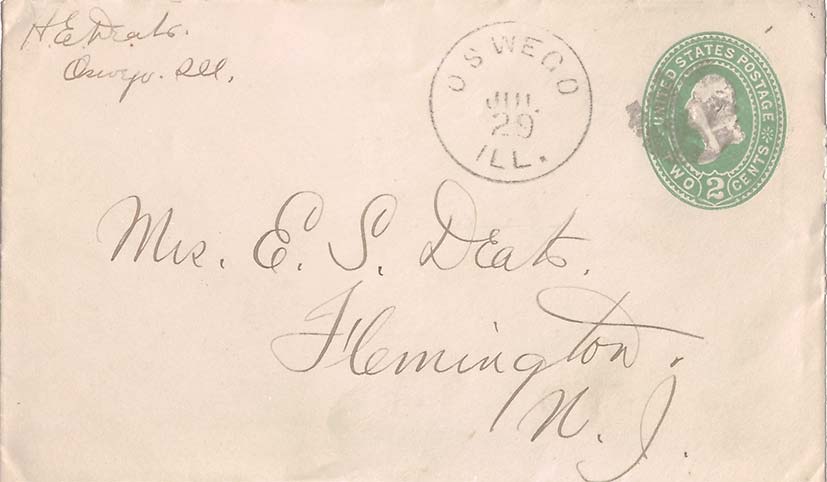 H E Deats.
Oswego. Ill.
OSWEGO
JUL
29
ILL.
UNITED STATES POSTAGE
TWO 2 CENTS
Mrs. E. S. Deats.
Flemington.
N. J.